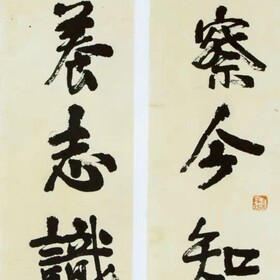 察今知
養志識